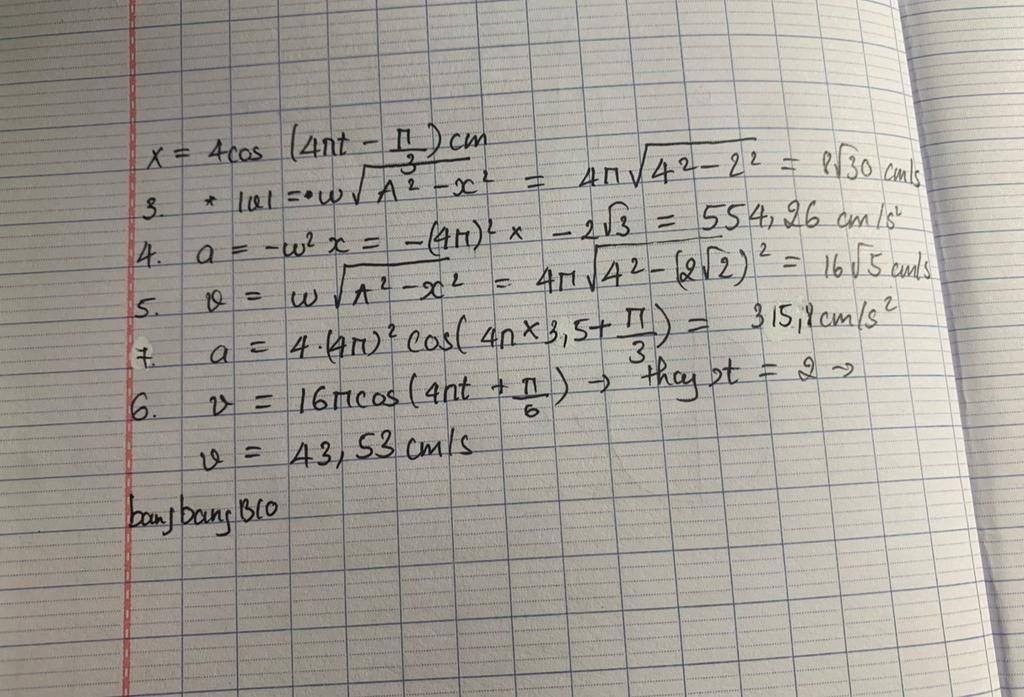 x = 4cos (4πt - π/3) cm
3. * |v| = ω√(A² - x²) = 4π√(4² - 2²) = 8√30 cm/s
4. a = -ω² x = -(4π)² × -2√3 = 554,26 cm/s²
5. v = ω√(A² - x²) = 4π√(4² - (2√2)²) = 16√5 cm/s
7. a = 4.(4π)² cos( 4π × 3,5 + π/3 ) = 315,8 cm/s²
6. v = 16π cos (4πt + π/6) → thay t = 2 →
v = 43,53 cm/s
bangbangBCO